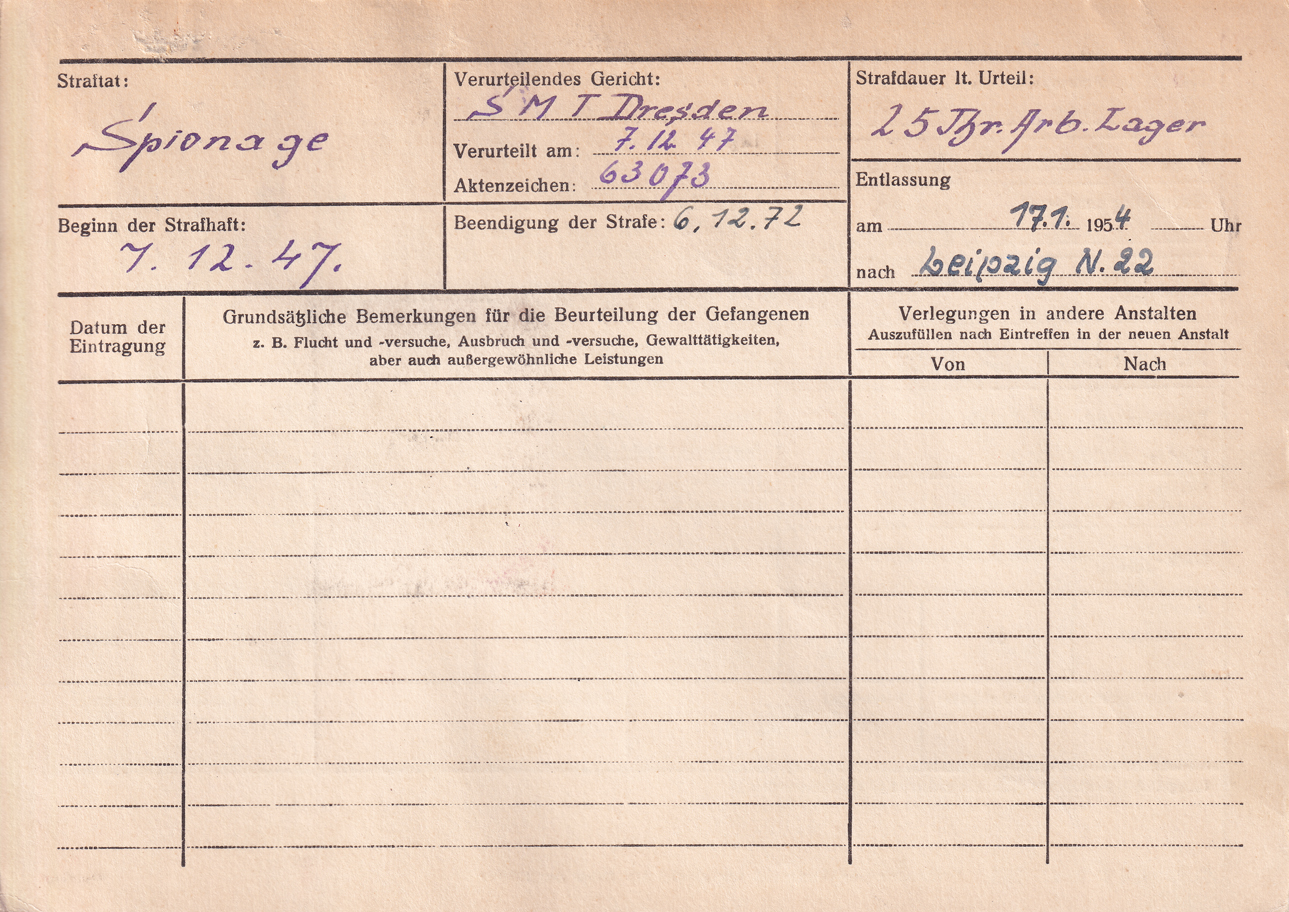 Straftat:
Spionage
Verurteilendes Gericht:
S M T Dresden
Verurteilt am: 7.12 47
Aktenzeichen: 63073
Strafdauer lt. Urteil:
25 Jhr. Arb. Lager
Beginn der Strafhaft:
7. 12. 47.
Beendigung der Strafe: 6.12.72
Entlassung
am 17.1. 1954 Uhr
nach Leipzig N. 22
Datum der
Eintragung
Grundsätzliche Bemerkungen für die Beurteilung der Gefangenen
z. B. Flucht und -versuche, Ausbruch und -versuche, Gewalttätigkeiten,
aber auch außergewöhnliche Leistungen
Verlegungen in andere Anstalten
Auszufüllen nach Eintreffen in der neuen Anstalt
Von
Nach